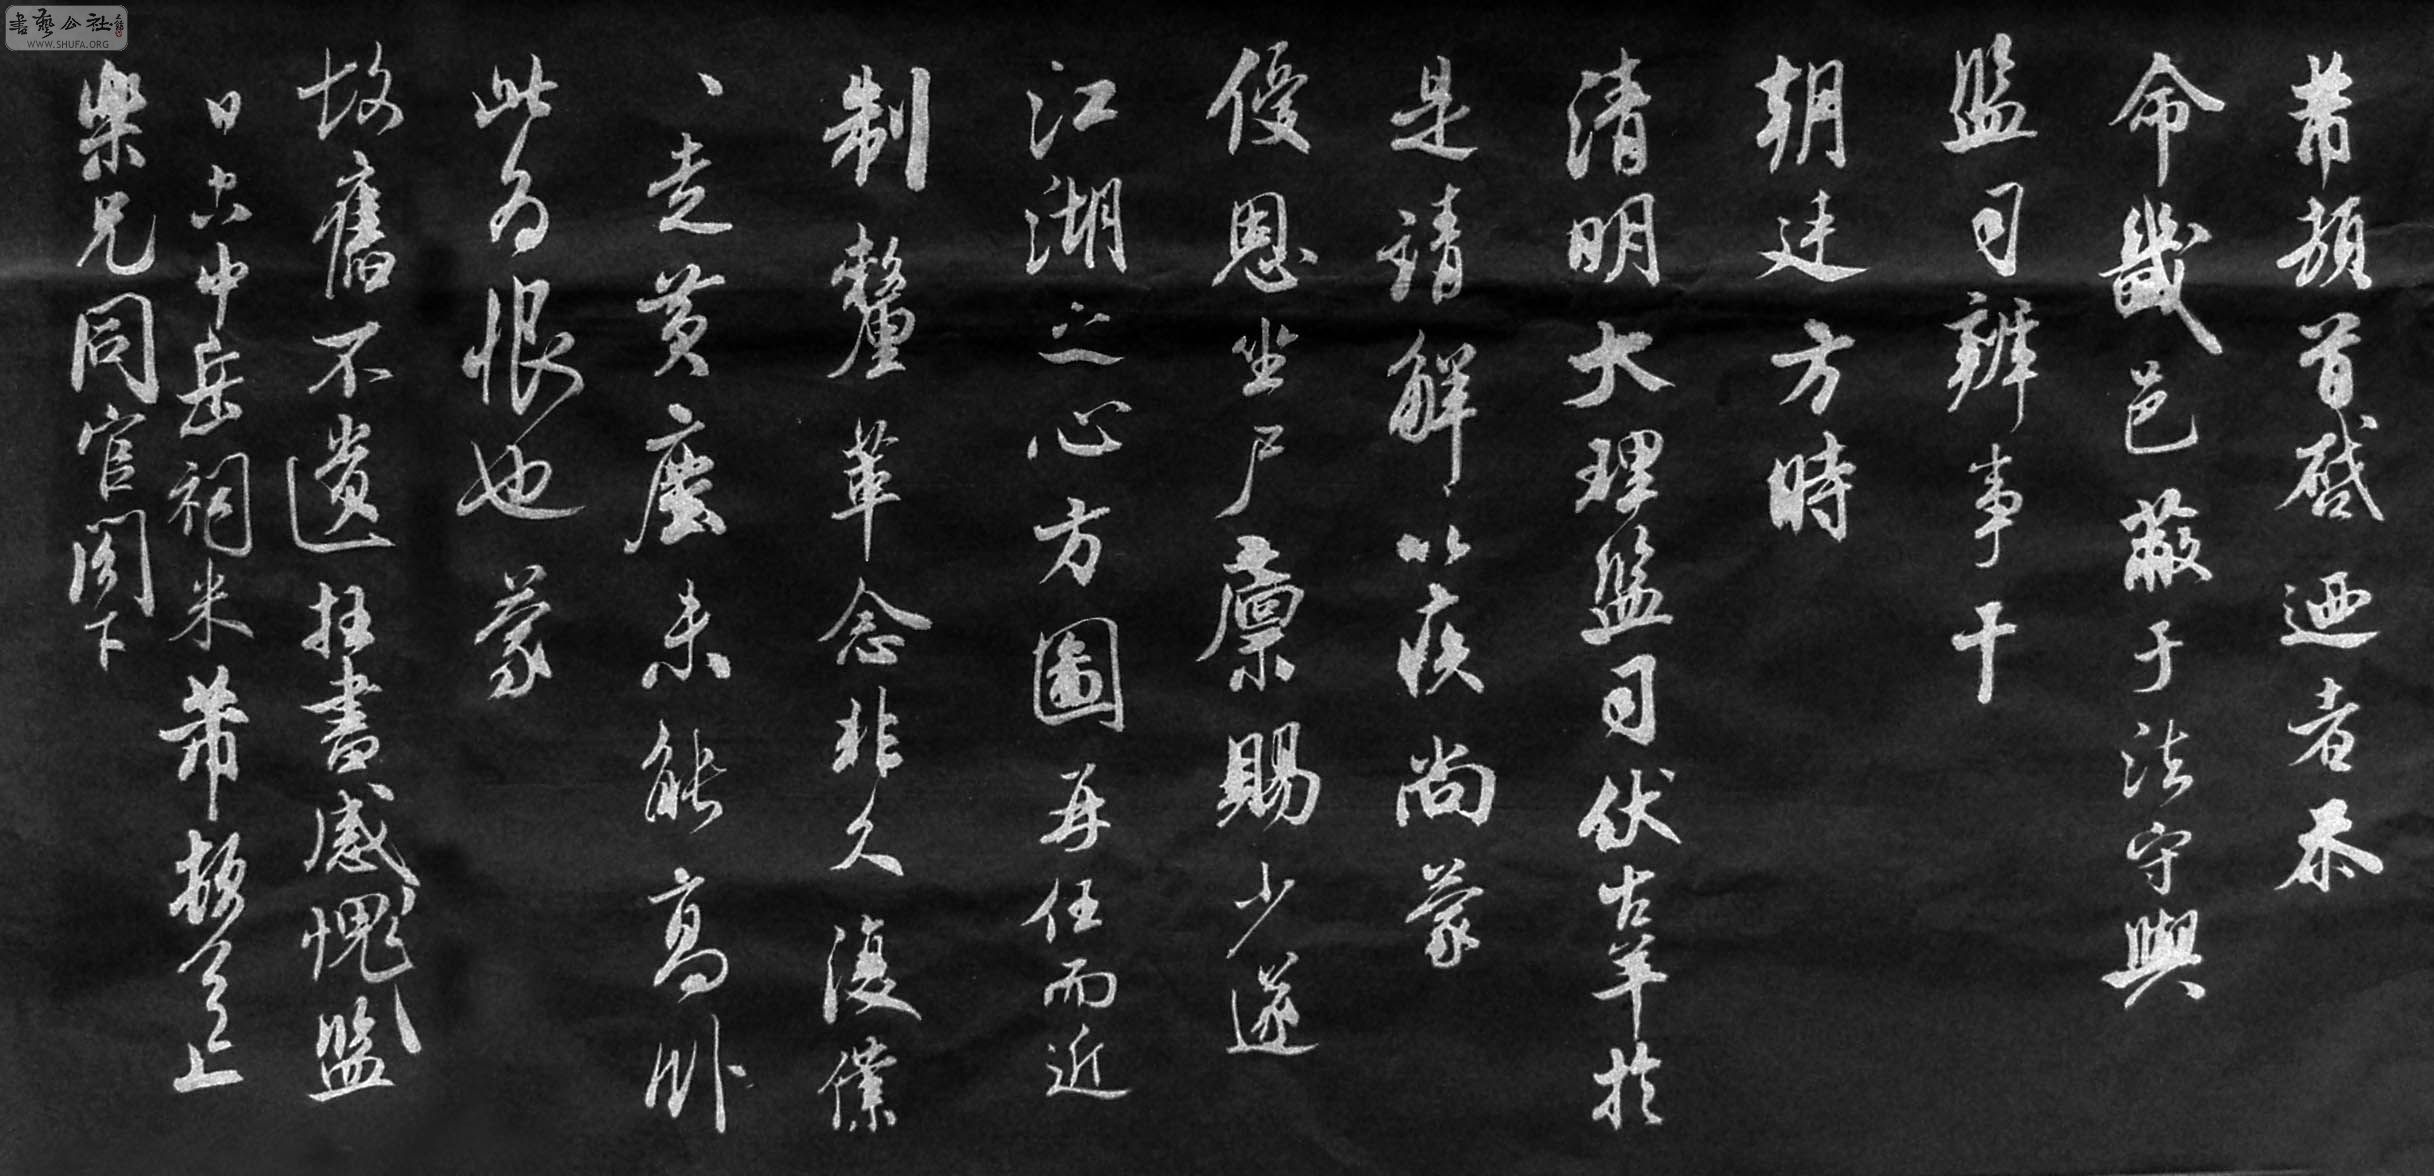 芾頓首啓迺者忝
命畿邑蔽于法守與
監司辨事干
朝廷方時
清明大理監司伏辜於
是請解以疾尚蒙
優恩坐尸廩賜少遂
江湖之心方圖再任而近
制釐革念非久復僕
、走黄塵未能高卧
此為恨也蒙
故舊不遺枉書感愧感愧監
日中岳祠米芾頓首上
樂兄同官閣下
書藝公社
WWW.SHUFA.ORG